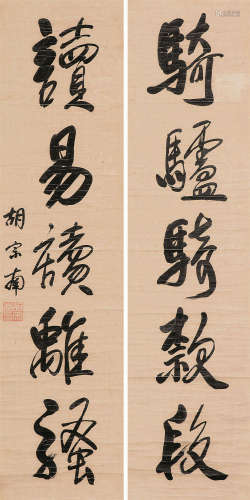 騎驢騎款段
讀易讀離騷
胡宗南